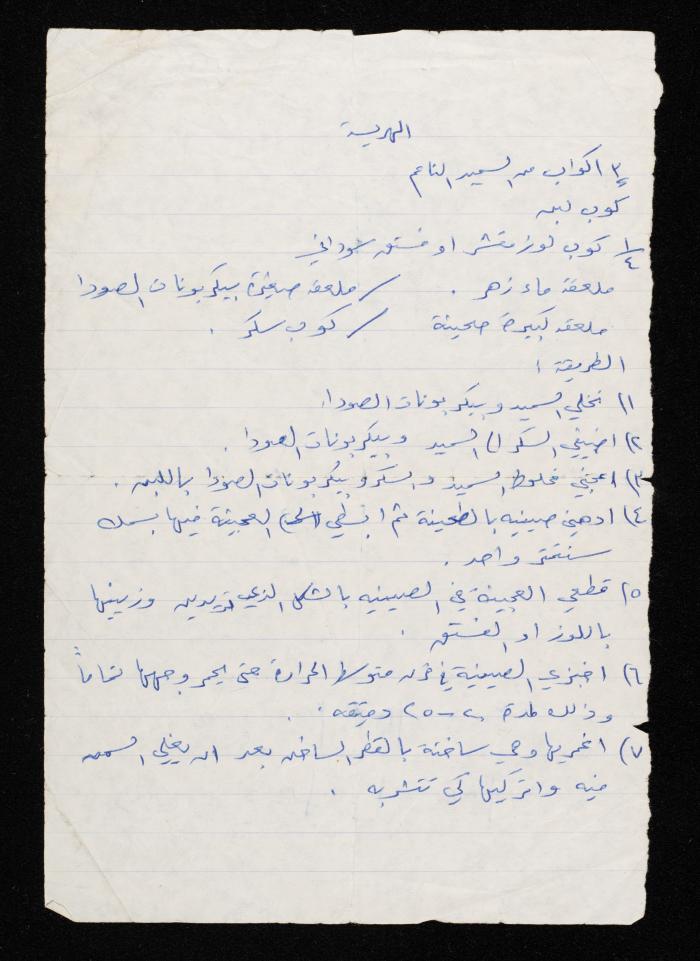 الهريسة
٣ اكواب من السميد الناعم
كوب لبن
١/٤ كوب لوز مقشر او فستق سوداني
ملعقة ماء زهر . / ملعقه صغيرة بيكربونات الصودا
ملعقه كبيرة طحينة / كوب سكر .
الطريقة :
١) نخلي السميد وبيكربونات الصودا
٢) اضيفي السكر الى السميد وبيكربونات الصودا .
٣) اعجني مخلوط السميد والسكر وبيكربونات الصودا باللبن .
٤) ادهني صينيه بالطحينة ثم ابسطي العجينة فيها بسمك
سنتمتر واحد .
٥) قطعي العجينة في الصينيه بالشكل الذي تريدين وزينيها
باللوز او الفستق .
٦) اخبزي الصينية في فرن متوسط الحرارة حتى يحمر وجهها تماماً
وذلك لمدة ٢٠-٢٥ دقيقه .
٧) اغمريها وهي ساخنة بالقطر الساخن بعد ان يغلي السمن
فيه واتركيها كي تتشربه .